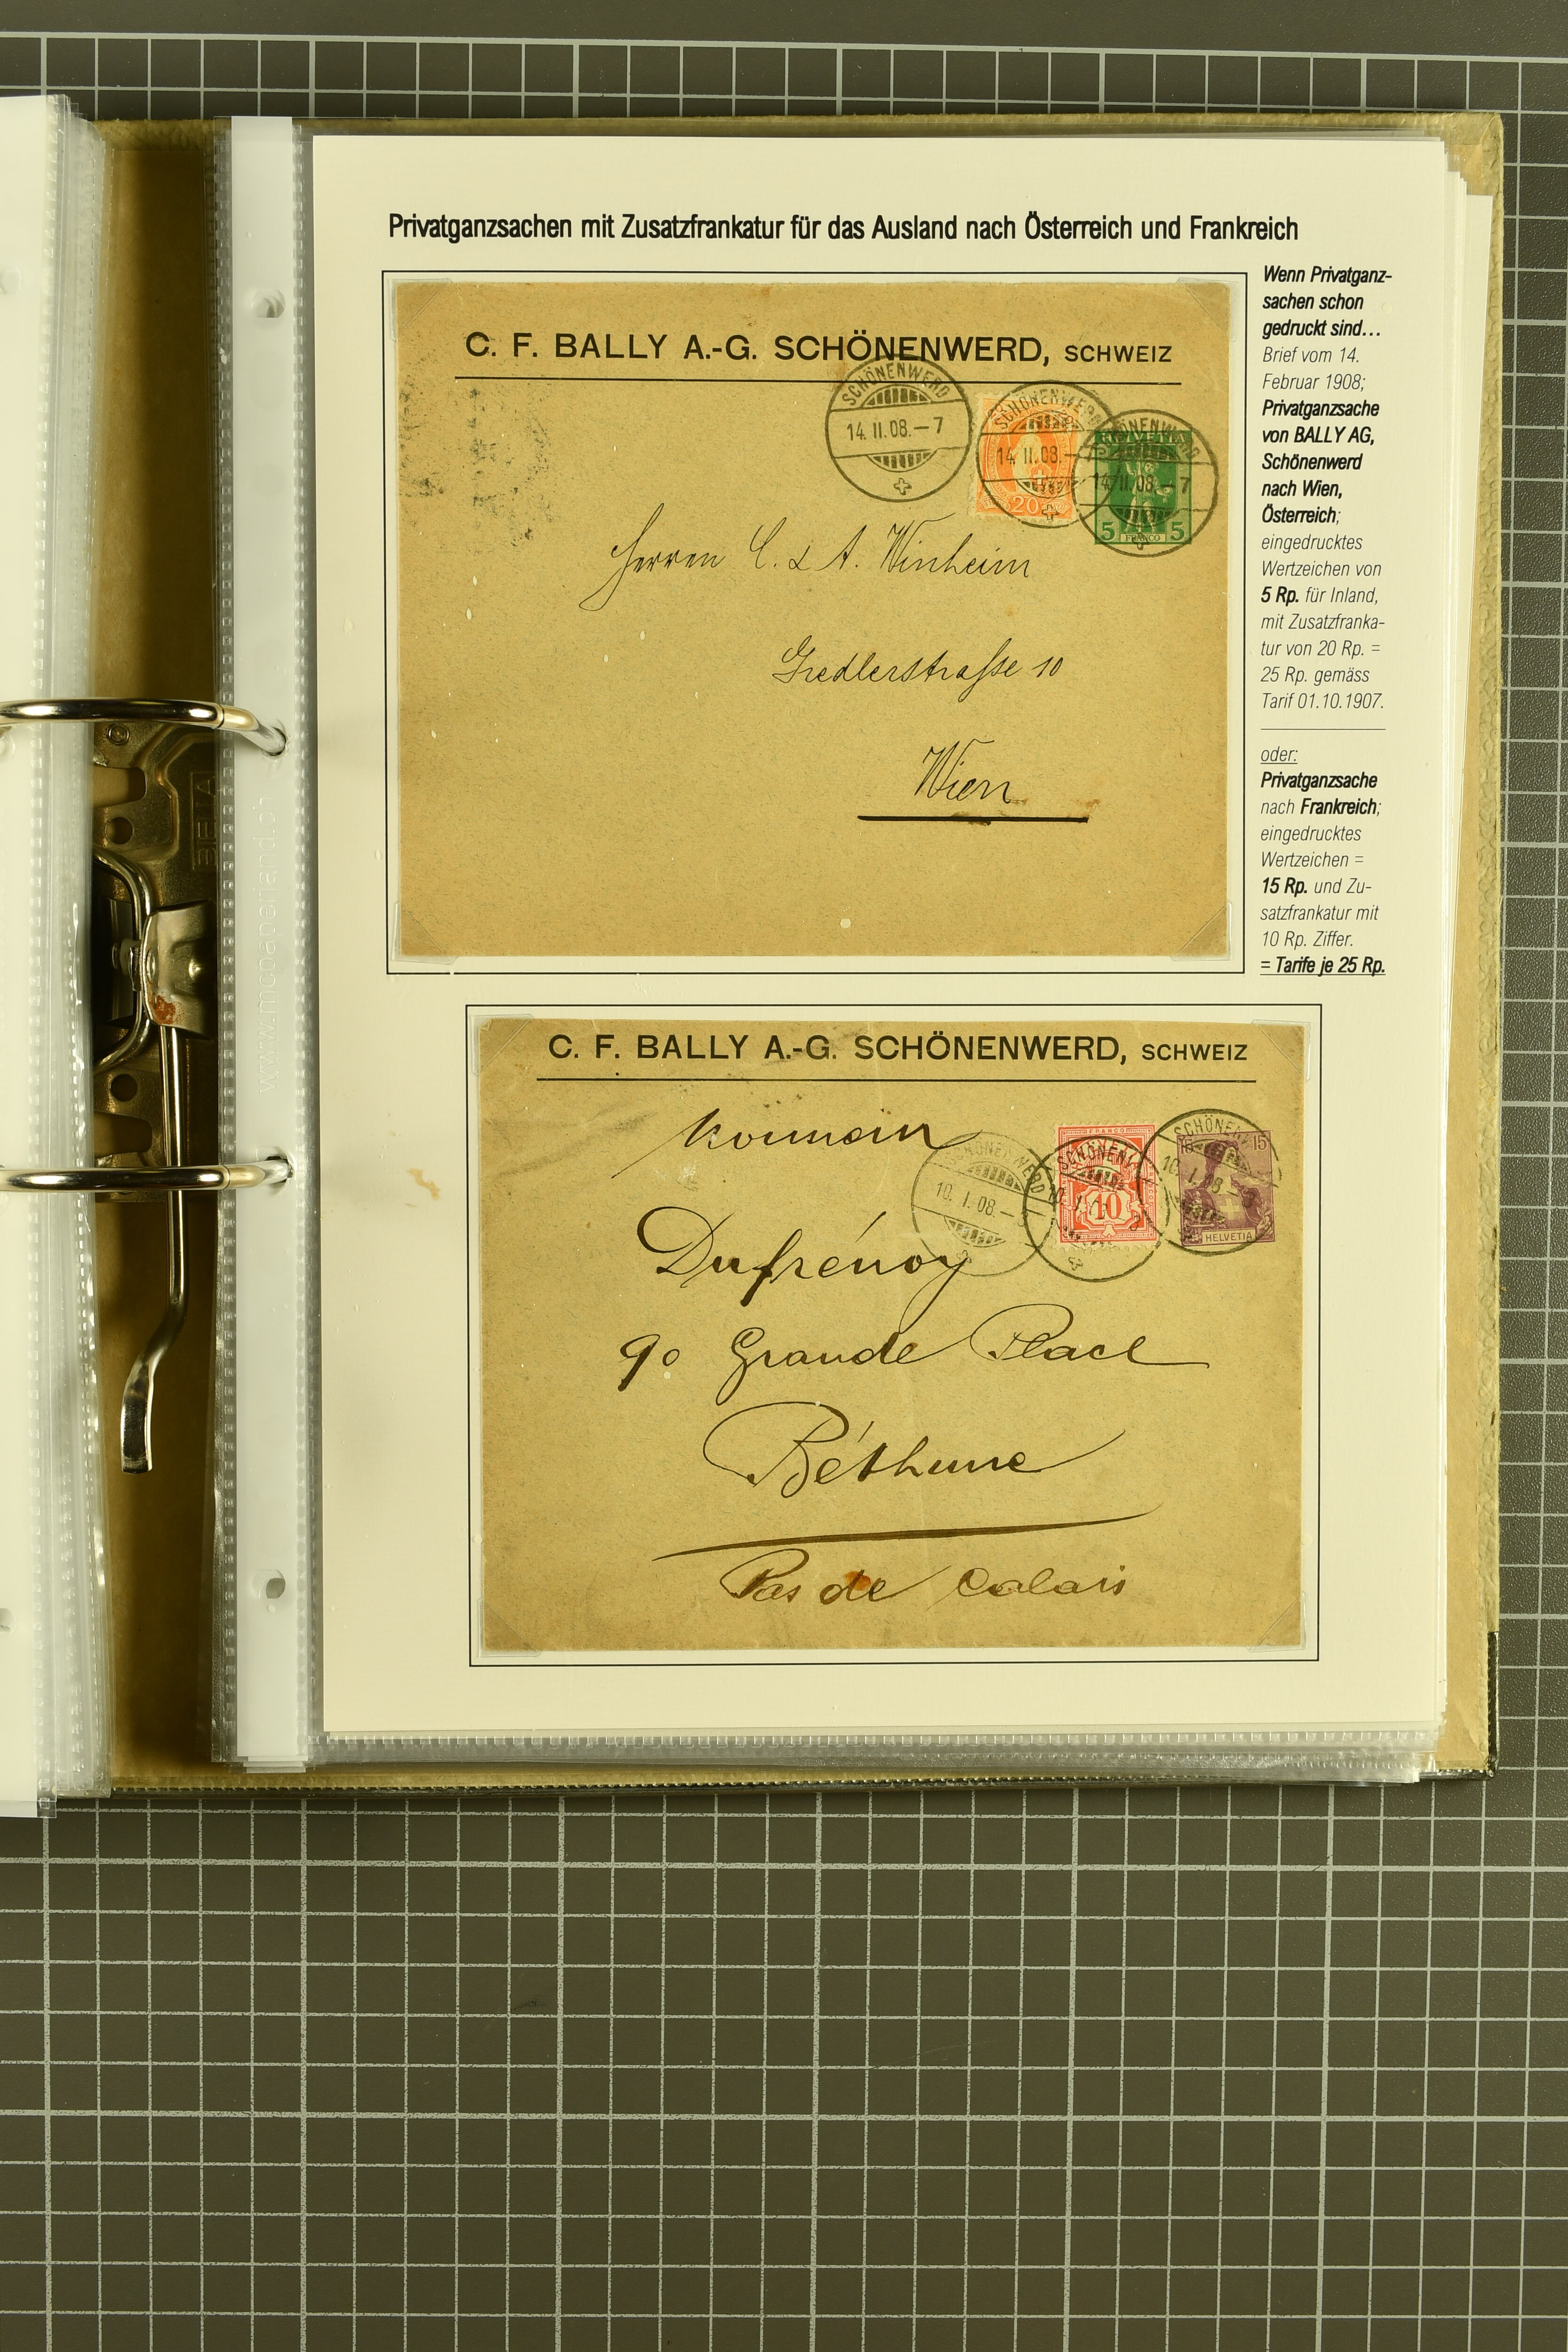 Privatganzsachen mit Zusatzfrankatur für das Ausland nach Österreich und Frankreich
C. F. BALLY A.-G. SCHÖNENWERD, SCHWEIZ
SCHÖNENWERD
14.II.08.–7
SCHÖNENWERD
14.II.08.–
20
SCHÖNENWERD
14.II.08.–7
HELVETIA
5 FRANCO 5
Herren C. & A. Winheim
Wien
Wenn Privatganz-
sachen schon
gedruckt sind...
Brief vom 14.
Februar 1908;
Privatganzsache
von BALLY AG,
Schönenwerd
nach Wien,
Österreich;
eingedrucktes
Wertzeichen von
5 Rp. für Inland,
mit Zusatzfranka-
tur von 20 Rp. =
25 Rp. gemäss
Tarif 01.10.1907.
oder:
Privatganzsache
nach Frankreich;
eingedrucktes
Wertzeichen =
15 Rp. und Zu-
satzfrankatur mit
10 Rp. Ziffer.
= Tarife je 25 Rp.
C. F. BALLY A.-G. SCHÖNENWERD, SCHWEIZ
SCHÖNENWERD
10.I.08.–
FRANCO
SCHÖNENW
10
SCHÖNEN
10.I.08–
15 15
HELVETIA
Dufrénoy
90 Grande Place
Béthune
Pas de Calais
BEIA
www.mcpaperland.ch